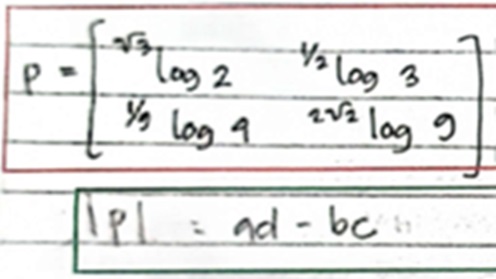 P = [ √3 log 2    1/2 log 3
1/9 log 4    2√2 log 9 ]
|P| = ad - bc